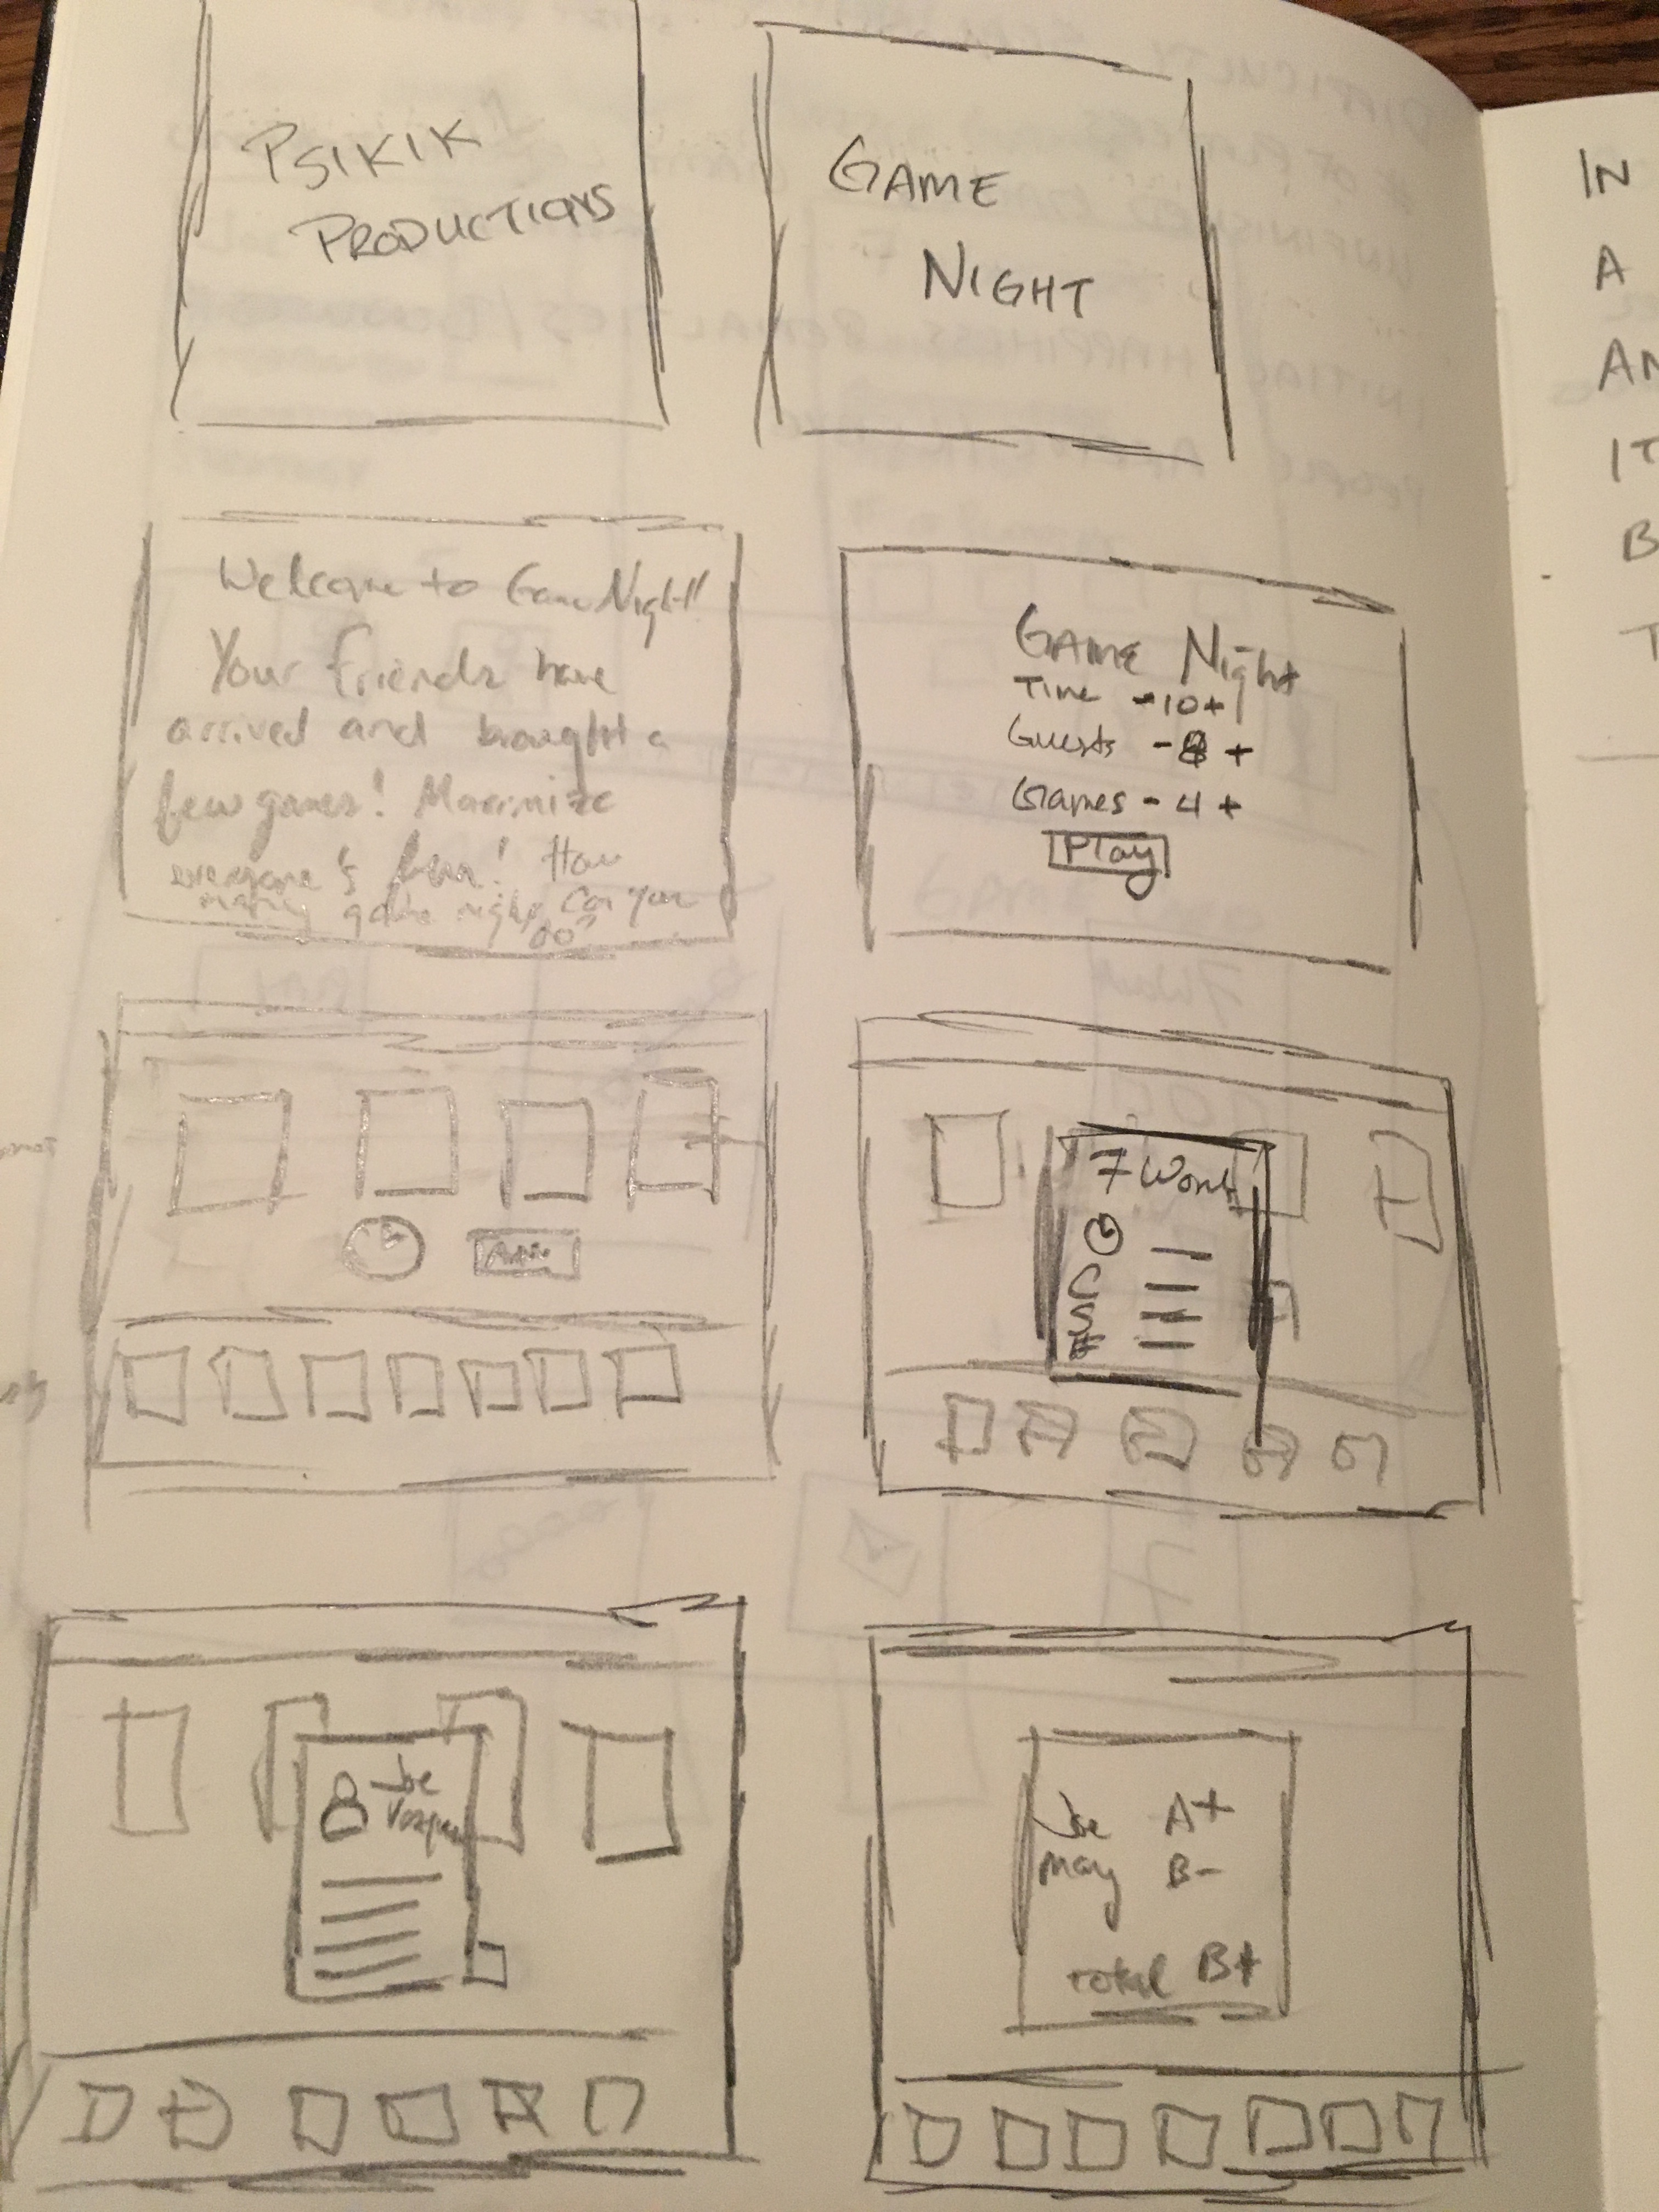 PSIKIK
PRODUCTIONS
GAME
NIGHT
Welcome to Game Night!
Your friends have
arrived and brought a
few games! Maximize
everyone's fun! How
many game nights can you
do?
GAME Night
Time - 10 +
Guests - 8 +
Games - 4 +
Play
7 Wonders
C
S
Joe
Joe A+
May B-
total B+
IN
A
AN
IT
B
T